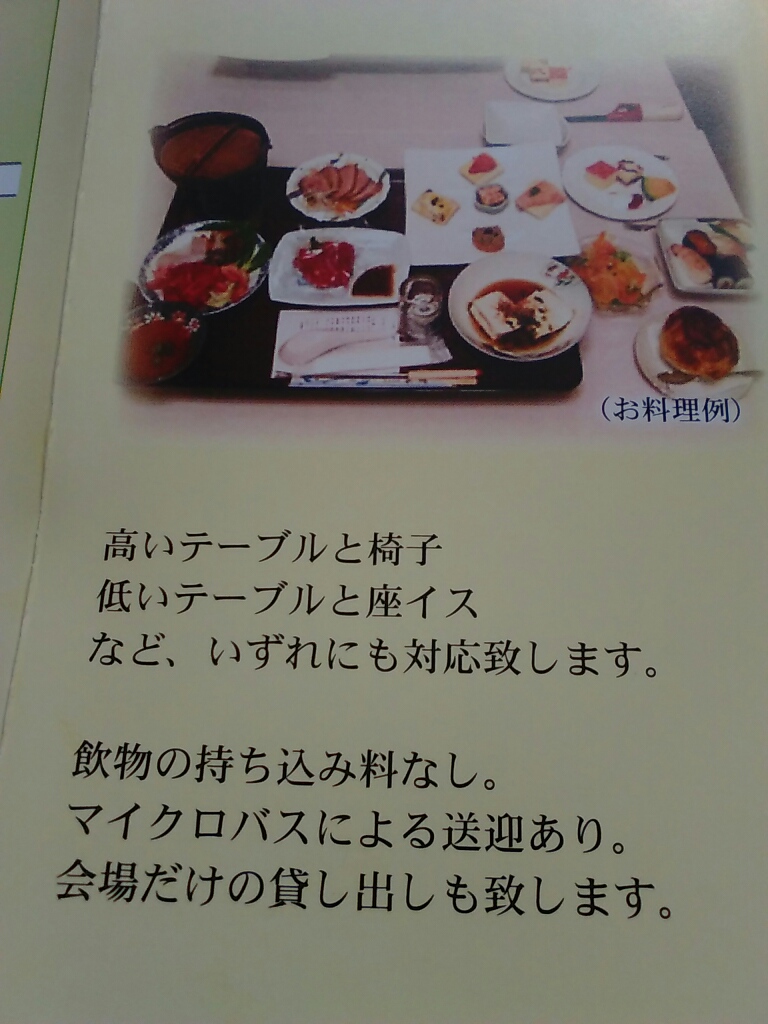 (お料理例)
高いテーブルと椅子
低いテーブルと座イス
など、いずれにも対応致します。
飲物の持ち込み料なし。
マイクロバスによる送迎あり。
会場だけの貸し出しも致します。